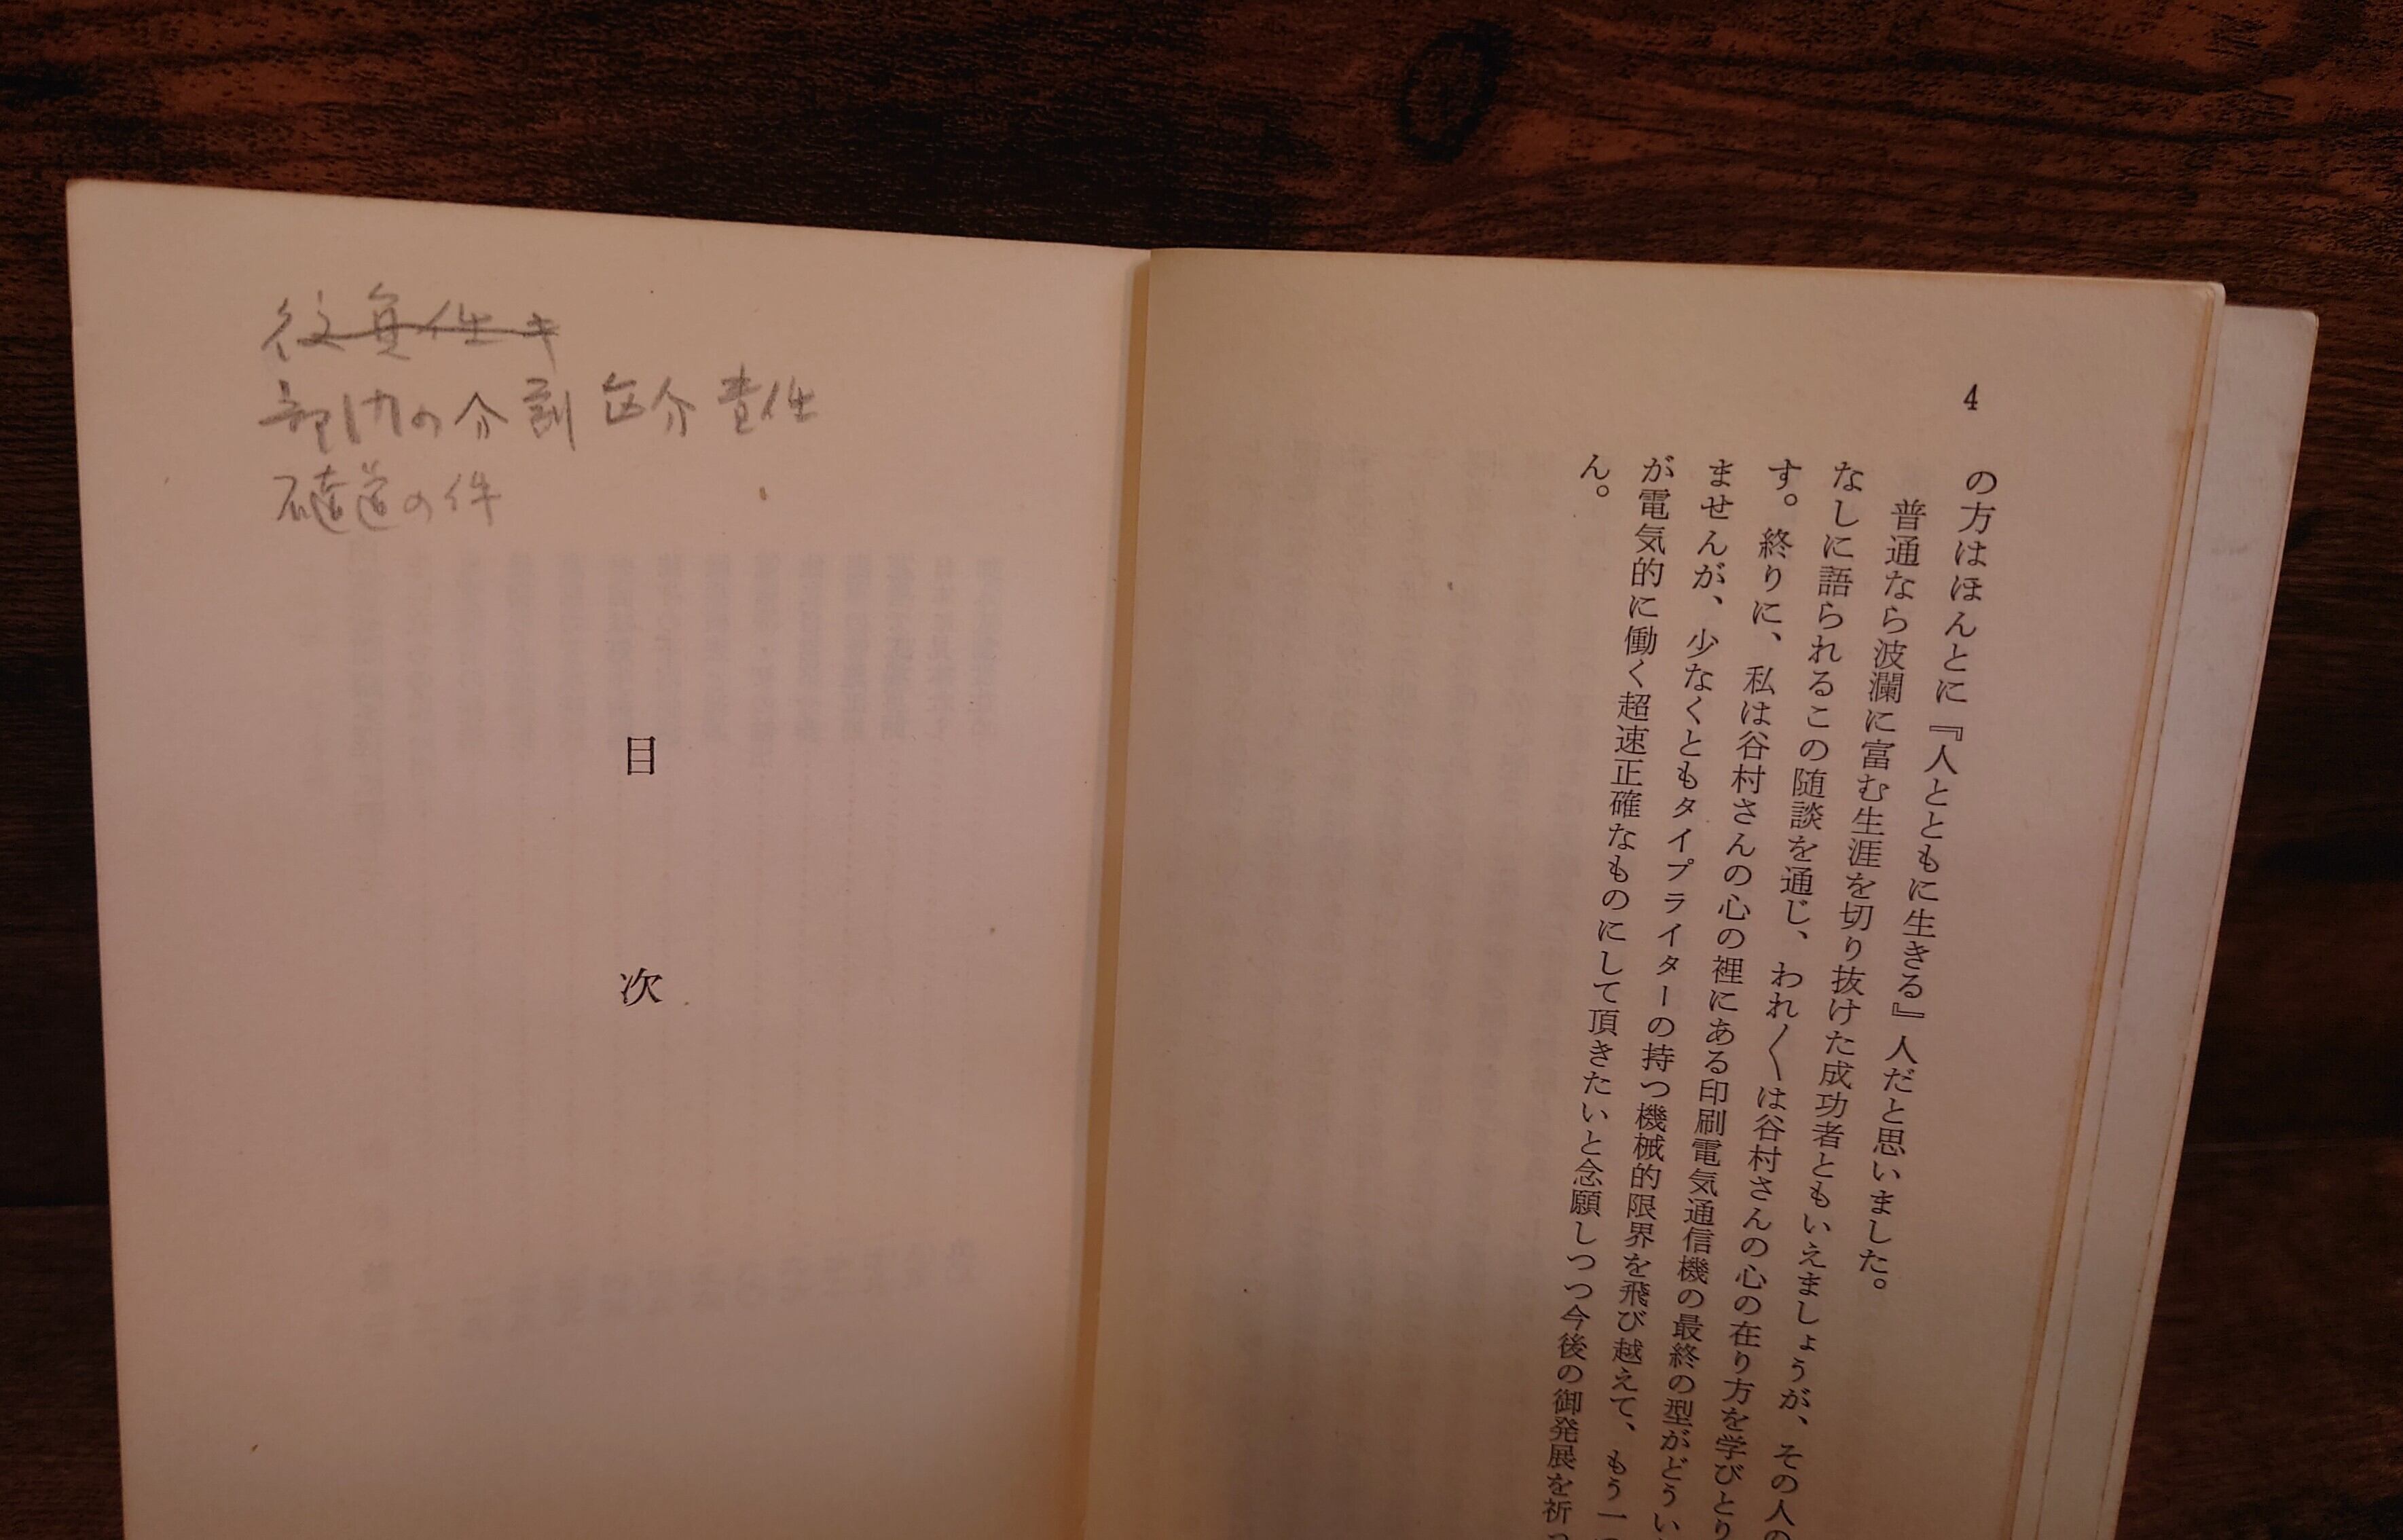 4
の方はほんとに『人とともに生きる』人だと思いました。
普通なら波瀾に富む生涯を切り抜けた成功者ともいえましょうが、その人の
なしに語られるこの随談を通じ、われ〱は谷村さんの心の在り方を学びとり
す。終りに、私は谷村さんの心の裡にある印刷電気通信機の最終の型がどうい
ませんが、少なくともタイプライターの持つ機械的限界を飛び越えて、もう一
が電気的に働く超速正確なものにして頂きたいと念願しつつ今後の御発展を祈っ
ん。
役員件
の分割区分責任
の件
目次